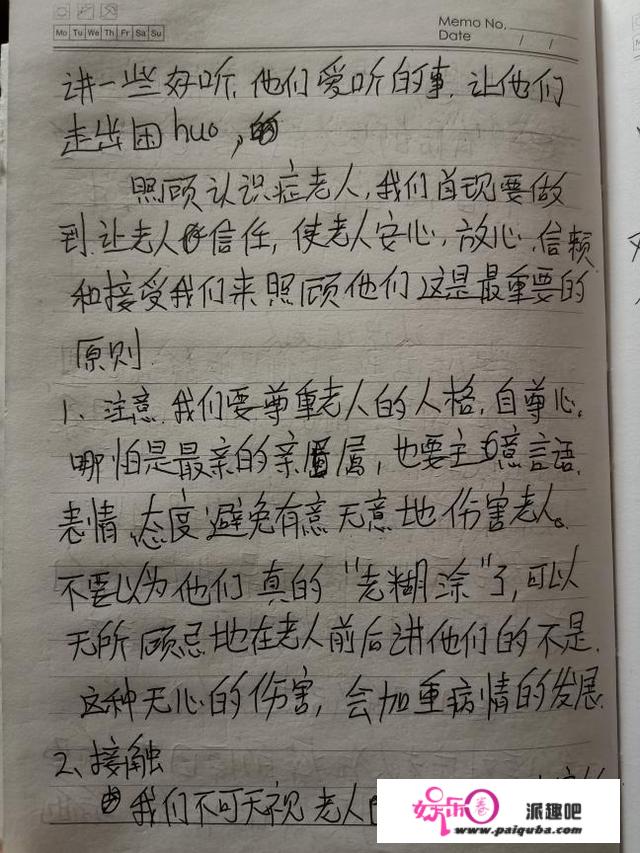 Memo No.
Mo Tu We Th Fr Sa Su
Date / /
讲一些好听、他们爱听的事,让他们
走出困huo,
照顾认识症老人,我们首现要做
到让老人信任,使老人安心,放心,信赖
和接受我们来照顾他们这是最重要的
原则
1、注意 我们要尊重老人的人格,自尊心。
哪怕是最亲的亲属,也要主意言语、
表情、态度避免有意无意地伤害老人。
不要以为他们真的"老糊涂"了,可以
无所顾忌地在老人前后讲他们的不是.
这种无心的伤害,会加重病情的发展.
2、接触
我们不可无视老人
娱乐圈 派趣吧
www.paiquba.com